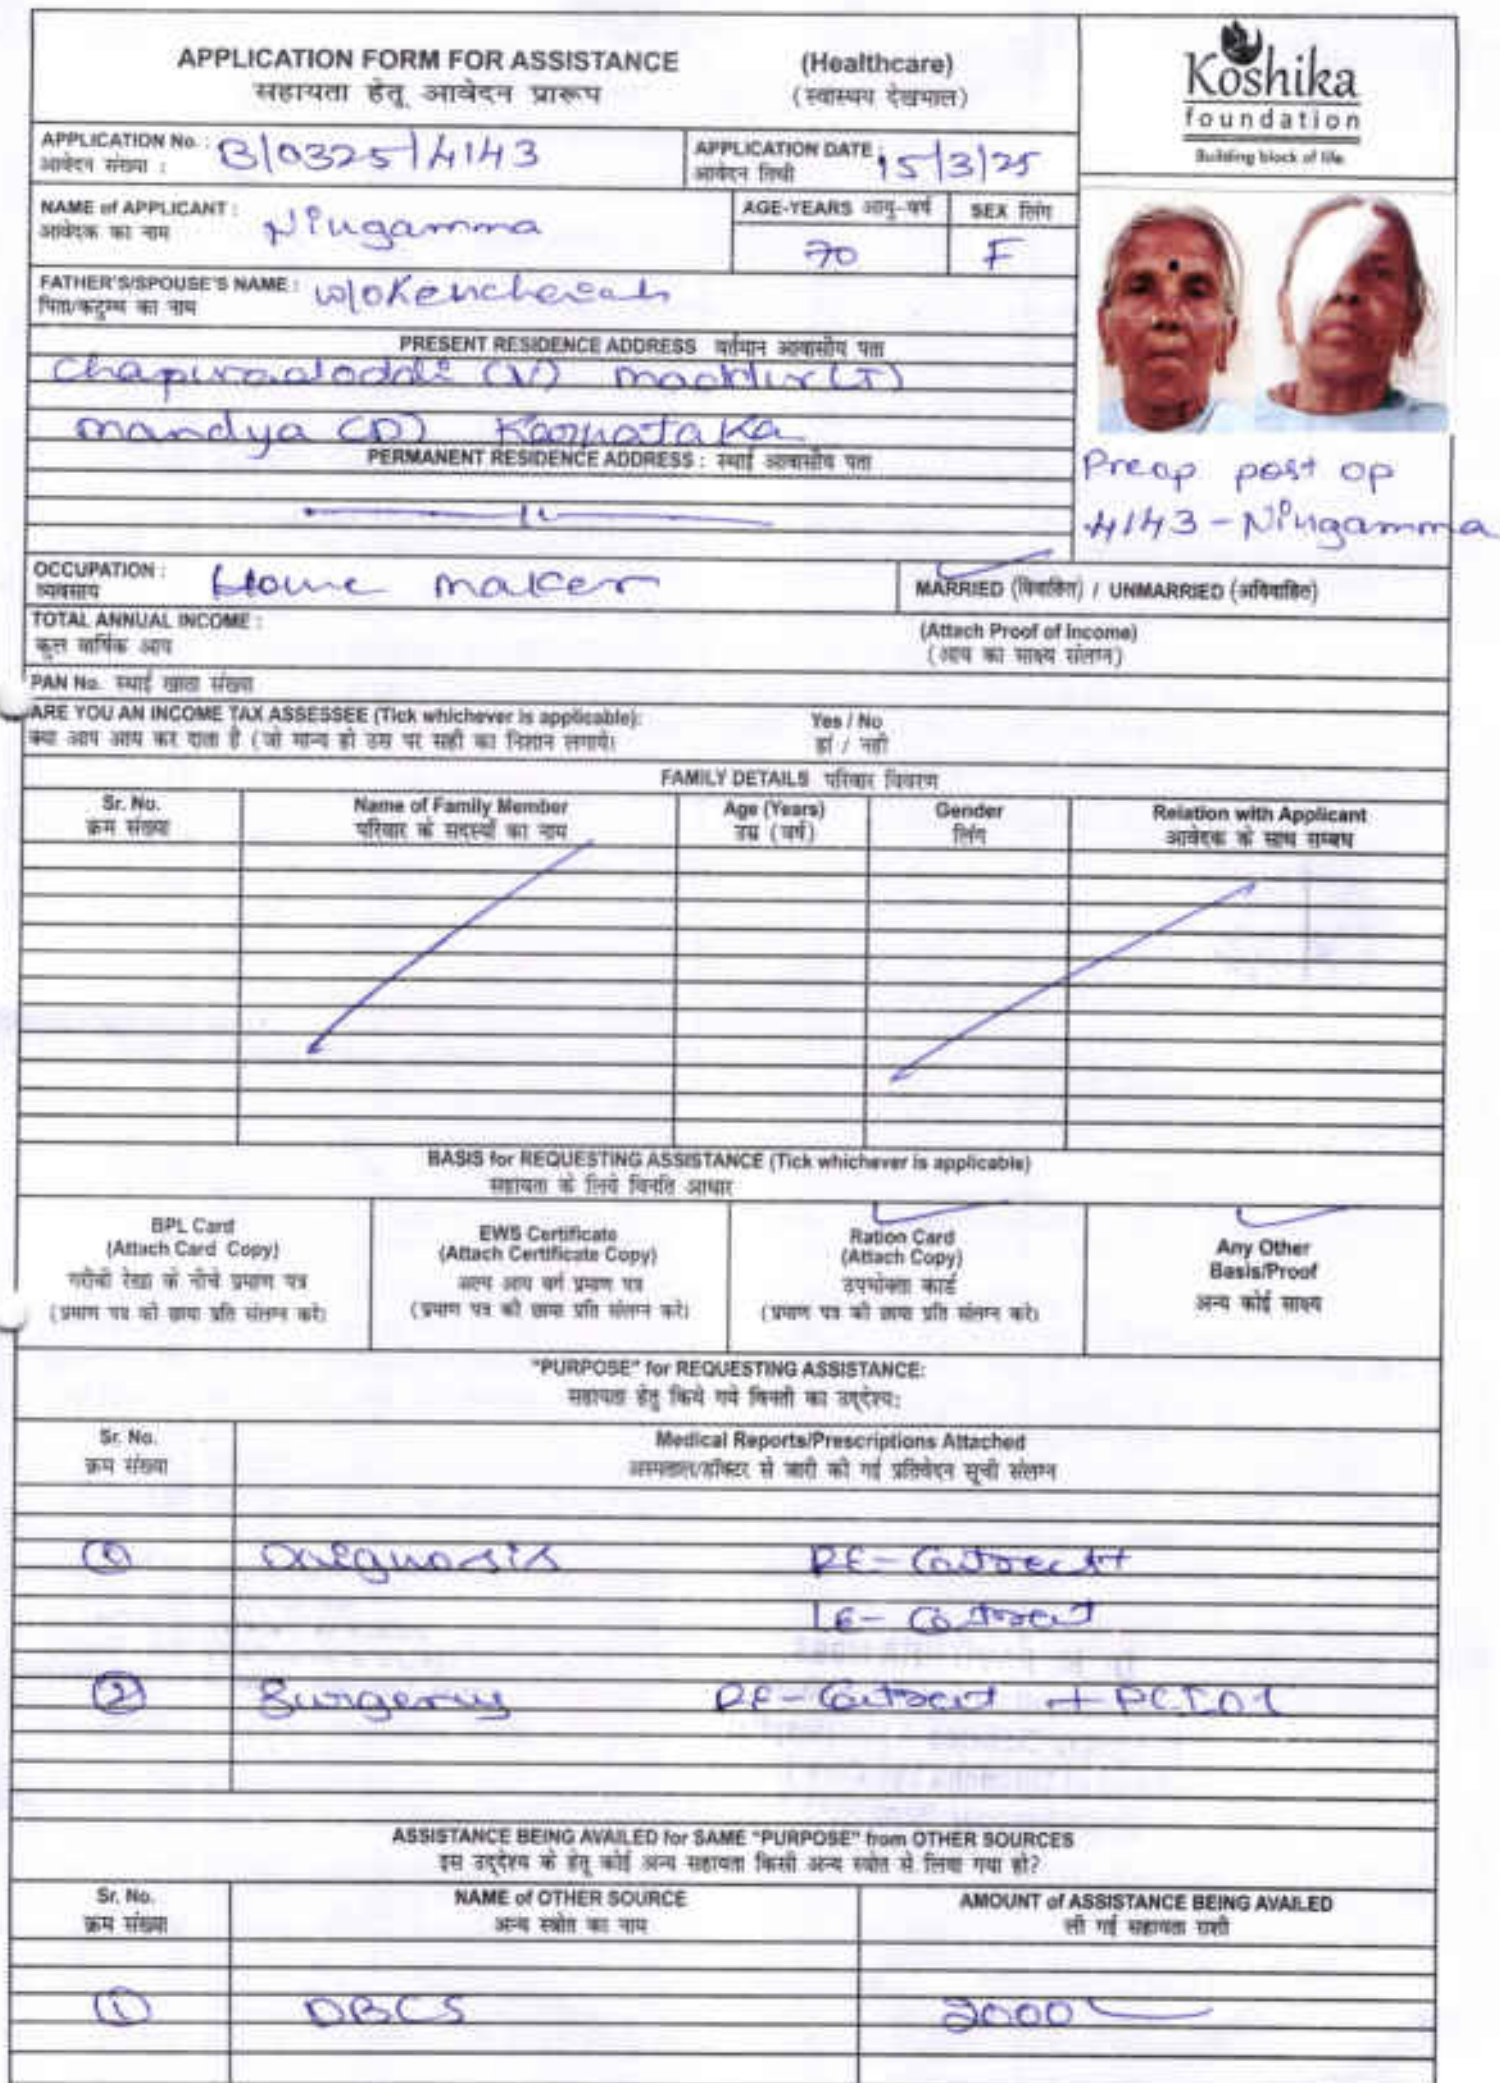 APPLICATION FORM FOR ASSISTANCE (Healthcare)
सहायता हेतू आवेदन प्रारूप (स्वास्थय देखभाल)
Koshika
foundation
Building block of life
APPLICATION No. : B/0325/4143 APPLICATION DATE : 15/3/25
आवेदन संख्या : आवेदन तिथी
NAME of APPLICANT : Ningamma AGE-YEARS आयु-वर्ष SEX लिंग
आवेदक का नाम 70 F
FATHER'S/SPOUSE'S NAME : w/o
पिता/कटुम्ब का नाम
PRESENT RESIDENCE ADDRESS वर्तमान आवासीय पता
(V) maddur (T)
mandya (D) Karnataka
PERMANENT RESIDENCE ADDRESS : स्थाई आवासीय पता
—— 11 ——
Preop post op
4143 - Ningamma
OCCUPATION : Home maker MARRIED (विवाहित) / UNMARRIED (अविवाहित)
व्यवसाय
TOTAL ANNUAL INCOME : (Attach Proof of Income)
कुल वार्षिक आय (आय का साक्ष्य संलग्न)
PAN No. स्थाई खाता संख्या
ARE YOU AN INCOME TAX ASSESSEE (Tick whichever is applicable): Yes / No
क्या आप आय कर दाता है (जो मान्य हो उस पर सही का निशान लगाये। हां / नही
FAMILY DETAILS परिवार विवरण
Sr. No. Name of Family Member Age (Years) Gender Relation with Applicant
क्रम संख्या परिवार के सदस्यों का नाम उम्र (वर्ष) लिंग आवेदक के साथ सम्बध
BASIS for REQUESTING ASSISTANCE (Tick whichever is applicable)
सहायता के लिये विनति आधार
BPL Card
(Attach Card Copy)
गरीबी रेखा के नीचे प्रमाण पत्र
(प्रमाण पत्र की छाया प्रति संलग्न करे)
EWS Certificate
(Attach Certificate Copy)
अल्प आय वर्ग प्रमाण पत्र
(प्रमाण पत्र की छाया प्रति संलग्न करे)
Ration Card
(Attach Copy)
उपभोक्ता कार्ड
(प्रमाण पत्र की छाया प्रति संलग्न करे)
Any Other
Basis/Proof
अन्य कोई साक्ष्य
"PURPOSE" for REQUESTING ASSISTANCE:
सहायता हेतु किये गये विनती का उद्देश्य:
Sr. No. Medical Reports/Prescriptions Attached
क्रम संख्या अस्पताल/डॉक्टर से जारी की गई प्रतिवेदन सूची संलग्न
① Diagnosis RE-
LE-
② Surgery RE- + PCIOL
ASSISTANCE BEING AVAILED for SAME "PURPOSE" from OTHER SOURCES
इस उद्देश्य के हेतू कोई अन्य सहायता किसी अन्य स्त्रोत से लिया गया हो?
Sr. No. NAME of OTHER SOURCE AMOUNT of ASSISTANCE BEING AVAILED
क्रम संख्या अन्य स्त्रोत का नाम ली गई सहायता राशी
① DBCS 2000